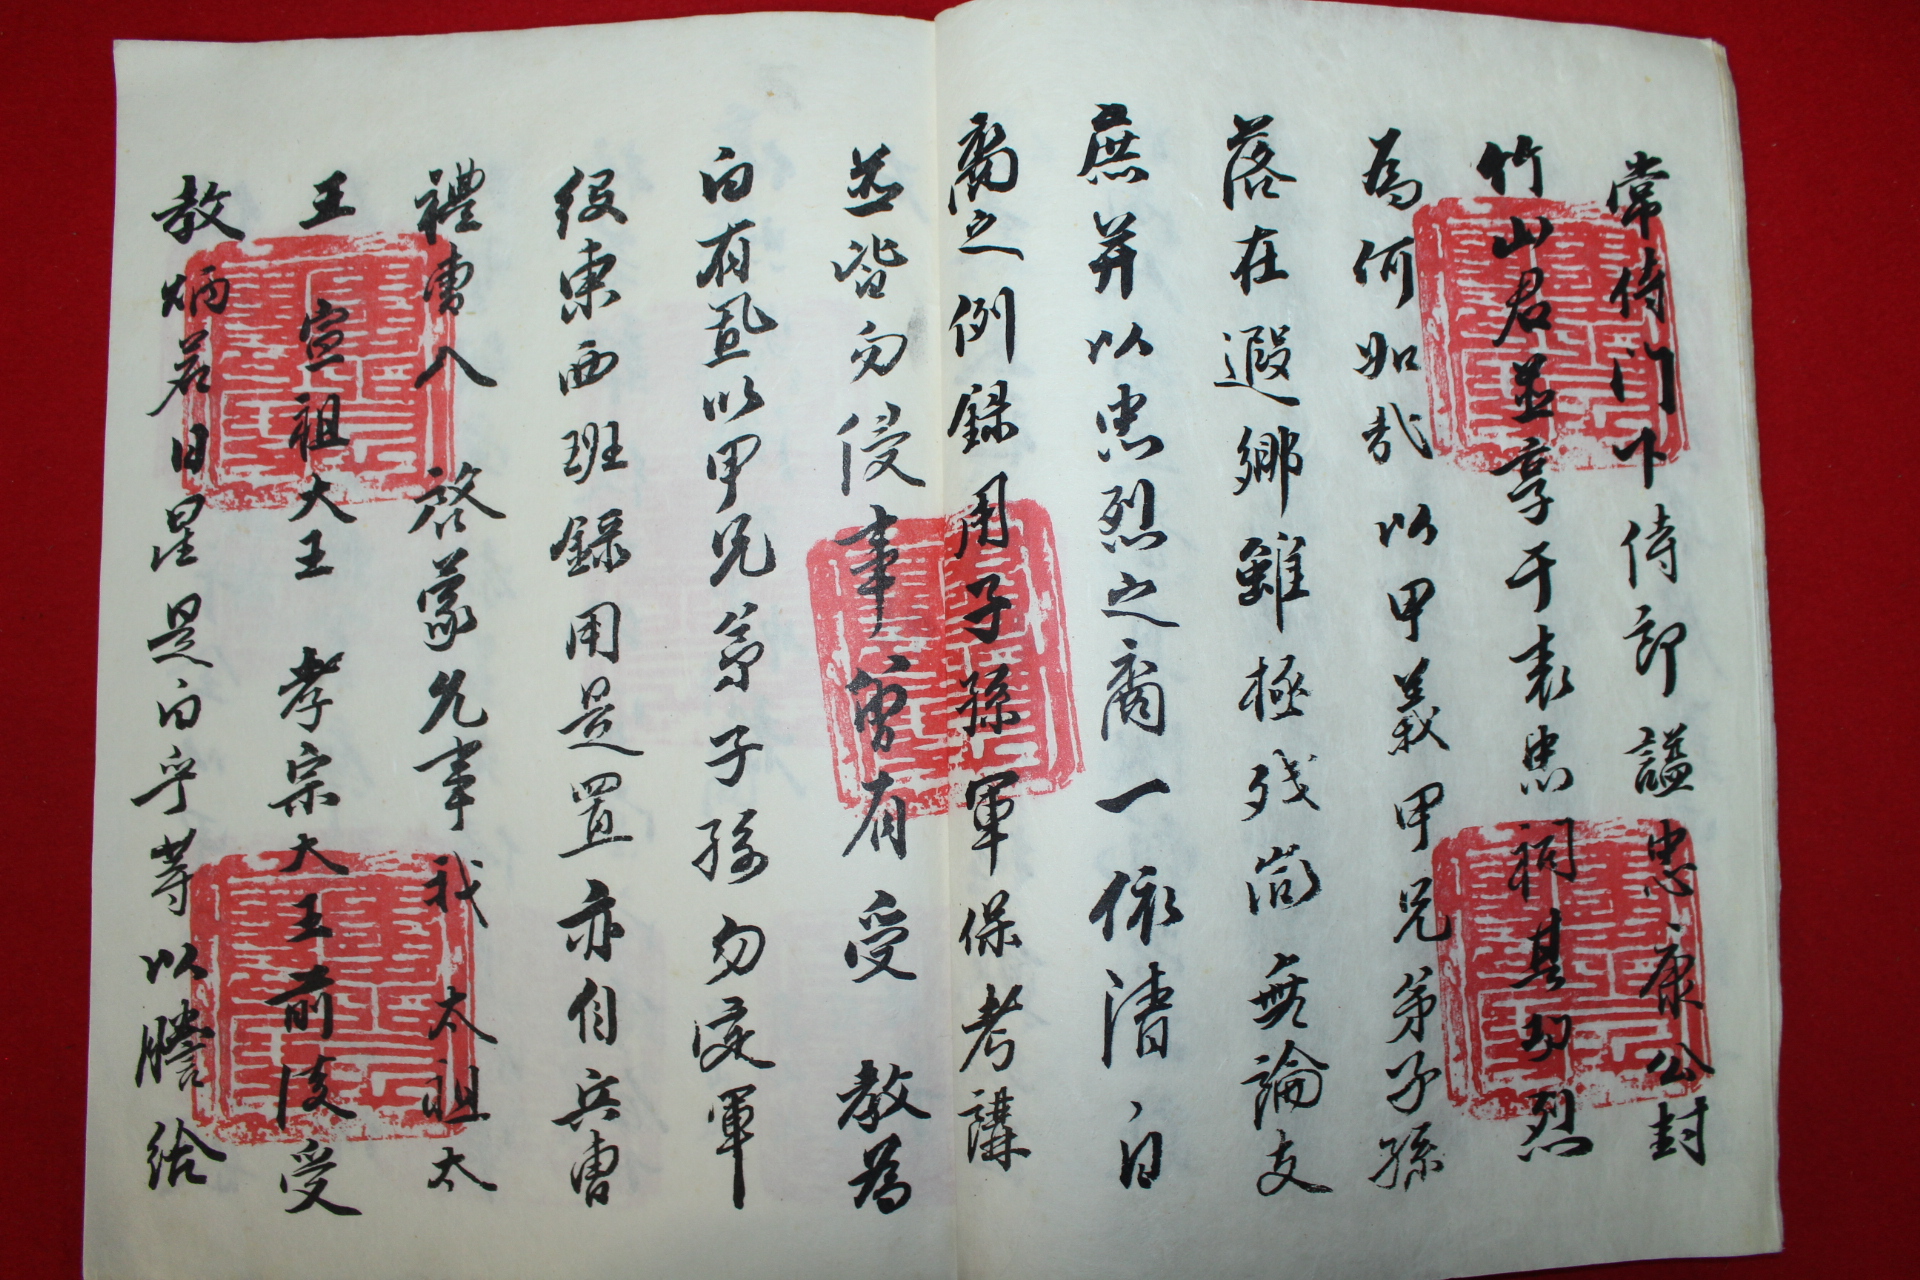 常侍门下侍郎謚忠康公封
竹山君並享于表忠祠其功烈
為何如哉以甲義甲兄弟子孫
落在遐鄉雖極殘微無論支
庶并以忠烈之裔一依清白
裔之例錄用子孫軍保考講
並皆勿侵事曾有受教為
白有置以甲兄弟子孫勿定軍
役東西班錄用是置亦自兵曹
禮曹入啓蒙允事我太祖大
王宣祖大王孝宗大王前後受
教炳若日星是白乎等以謄給